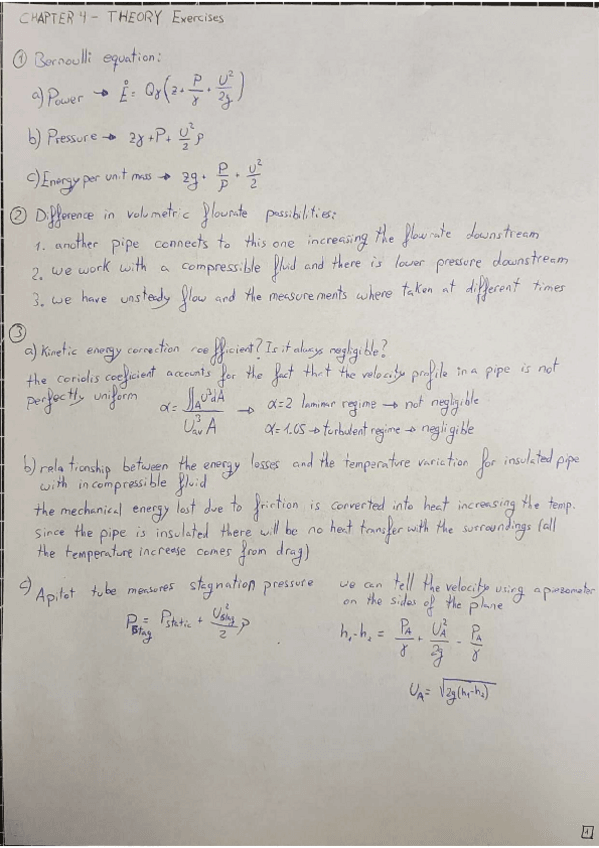 CHAPTER 4 - THEORY Exercises
① Bernoulli equation:
a) Power → Ė = Qγ(z + P/γ + U²/2g)
b) Pressure → zγ + P + U²/2 ρ
c) Energy per unit mass → zg + P/ρ + U²/2
② Difference in volumetric flowrate possibilities:
1. another pipe connects to this one increasing the flowrate downstream
2. we work with a compressible fluid and there is lower pressure downstream
3. we have unsteady flow and the measurements where taken at different times
③
a) Kinetic energy correction coefficient? Is it always negligible?
the coriolis coeficient accounts for the fact that the velocity profile in a pipe is not
perfectly uniform
α = ∬_A U³dA / U_av³ A → α=2 laminar regime → not negligible
α=1.05 → turbulent regime → negligible
b) relationship between the energy losses and the temperature variation for insulated pipe
with incompressible fluid
the mechanical energy lost due to friction is converted into heat increasing the temp.
Since the pipe is insulated there will be no heat transfer with the surroundings (all
the temperature increase comes from drag)
c) A pitot tube measures stagnation pressure
P_stag = P_static + U_stag²/2 ρ
we can tell the velocity using a piezometer
on the sides of the plane
h₁-h₂ = P_A/γ + U_A²/2g - P_A/γ
U_A = √2g(h₁-h₂)
1